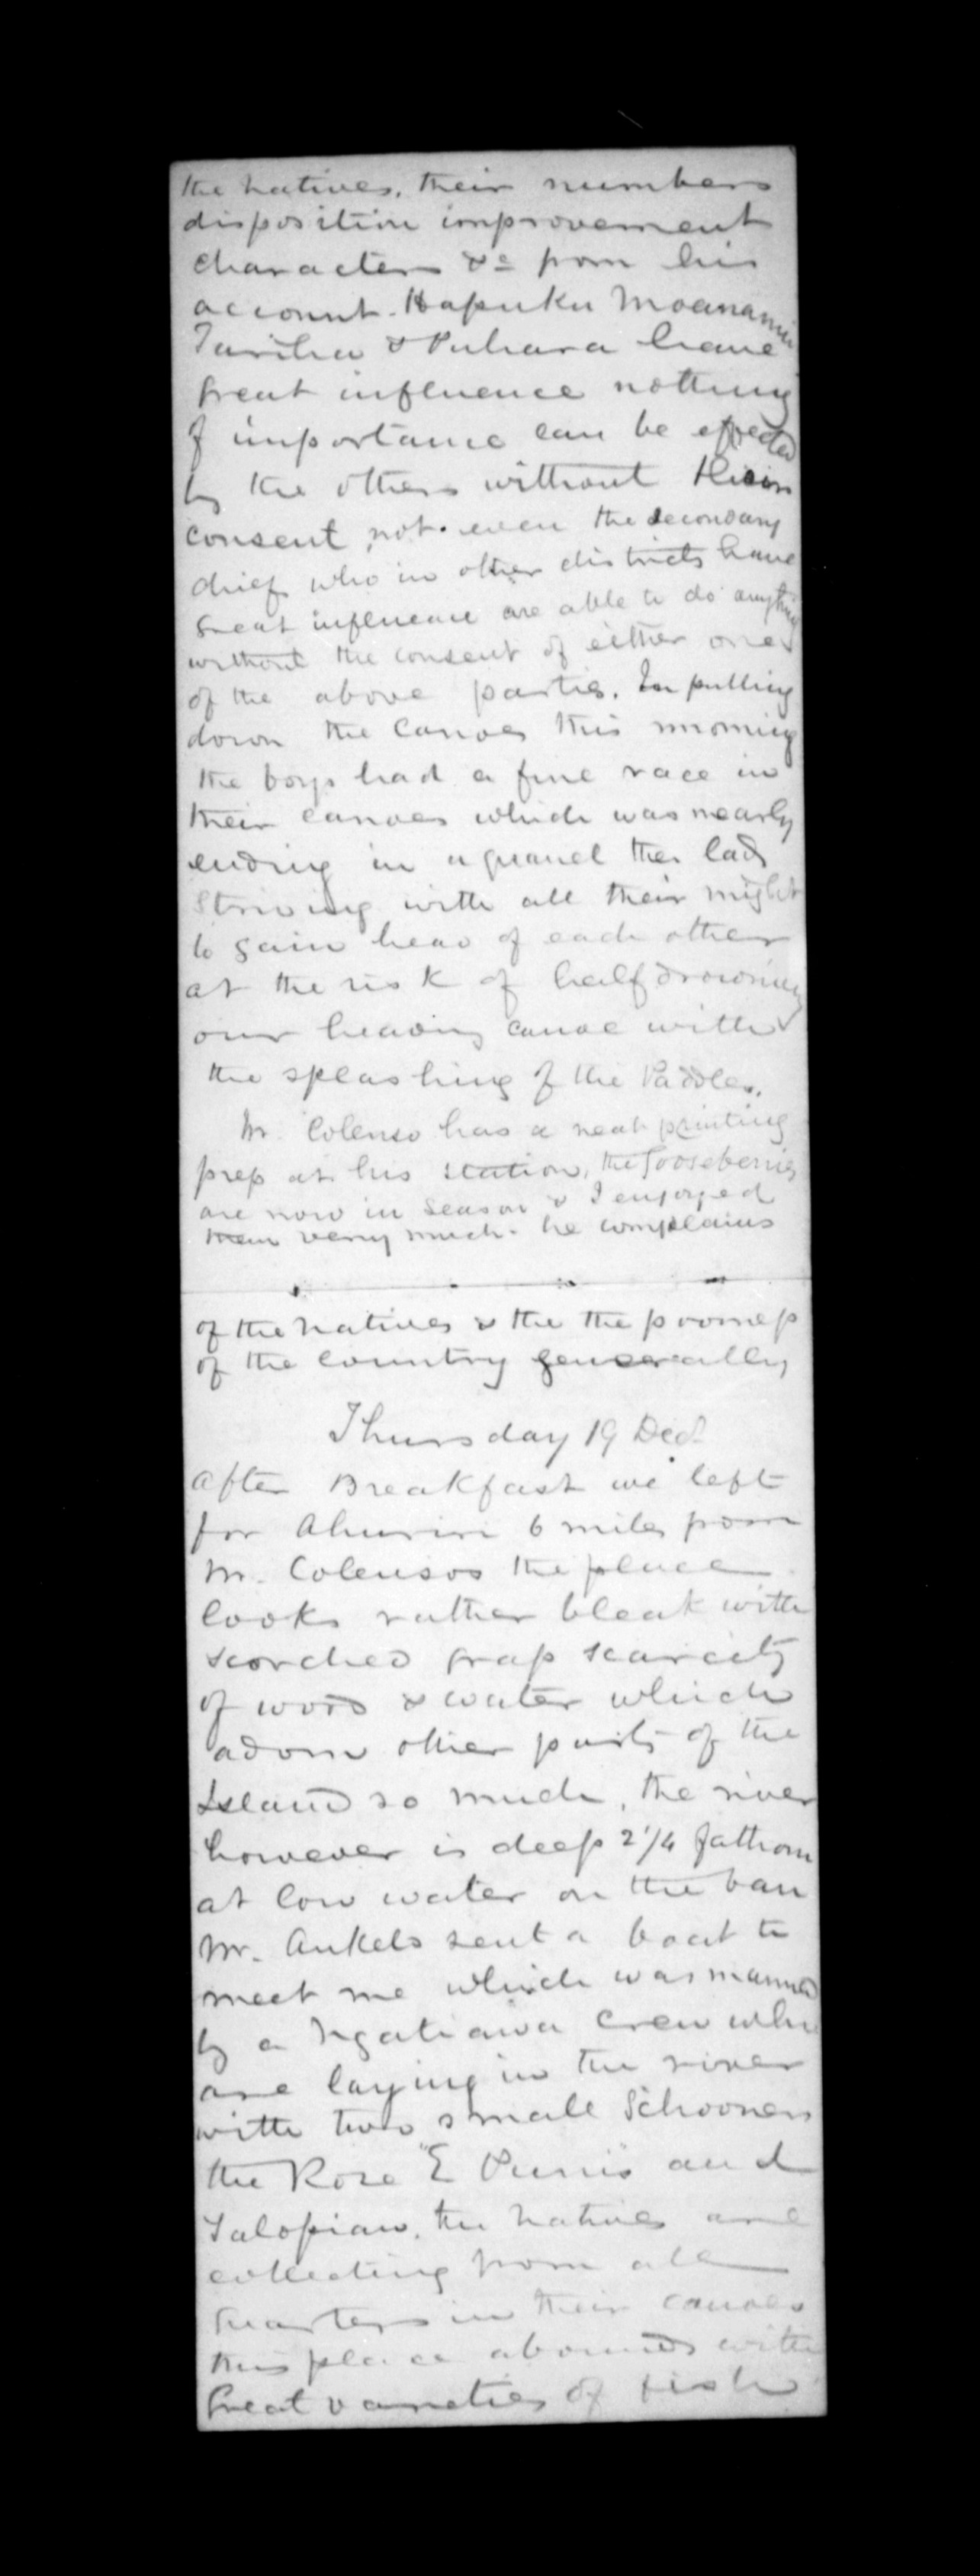 the natives, their numbers
disposition improvement
character &c from his
account. Hapuku Moananui
Tariha & Puhara have
great influence nothing
of importance can be effected
by the others without their
consent, not even the secondary
chiefs who in other districts have
great influence are able to do anything
without the consent of either one
of the above parties. In pulling
down the canoes this morning
the boys had a fine race in
their canoes which was nearly
ending in a quarrel the lads
striving with all their might
to gain head of each other
at the risk of half drowning
our heavy canoe with
the splashing of the Paddles.
Mr. Colenso has a neat printing
press at his station, the Gooseberries
are now in season & I enjoyed
them very much. he complains
of the natives & the the poorness
of the country generally
Thursday 19 Decr
After Breakfast we left
for Ahuriri 6 miles from
Mr. Colensos the place
looks rather bleak with
scorched grass scarcity
of wood & water which
adorn other parts of the
Island so much, the river
however is deep 2 1/4 fathom
at low water on the bar
Mr. Ankels sent a boat to
meet me which was manned
by a Ngatiawa crew who
are laying in the river
with two small Schooners
the Rose "E Puni" and
Salopian. the natives are
collecting from all
quarters in their canoes
this place abounds with
Great varieties of fish